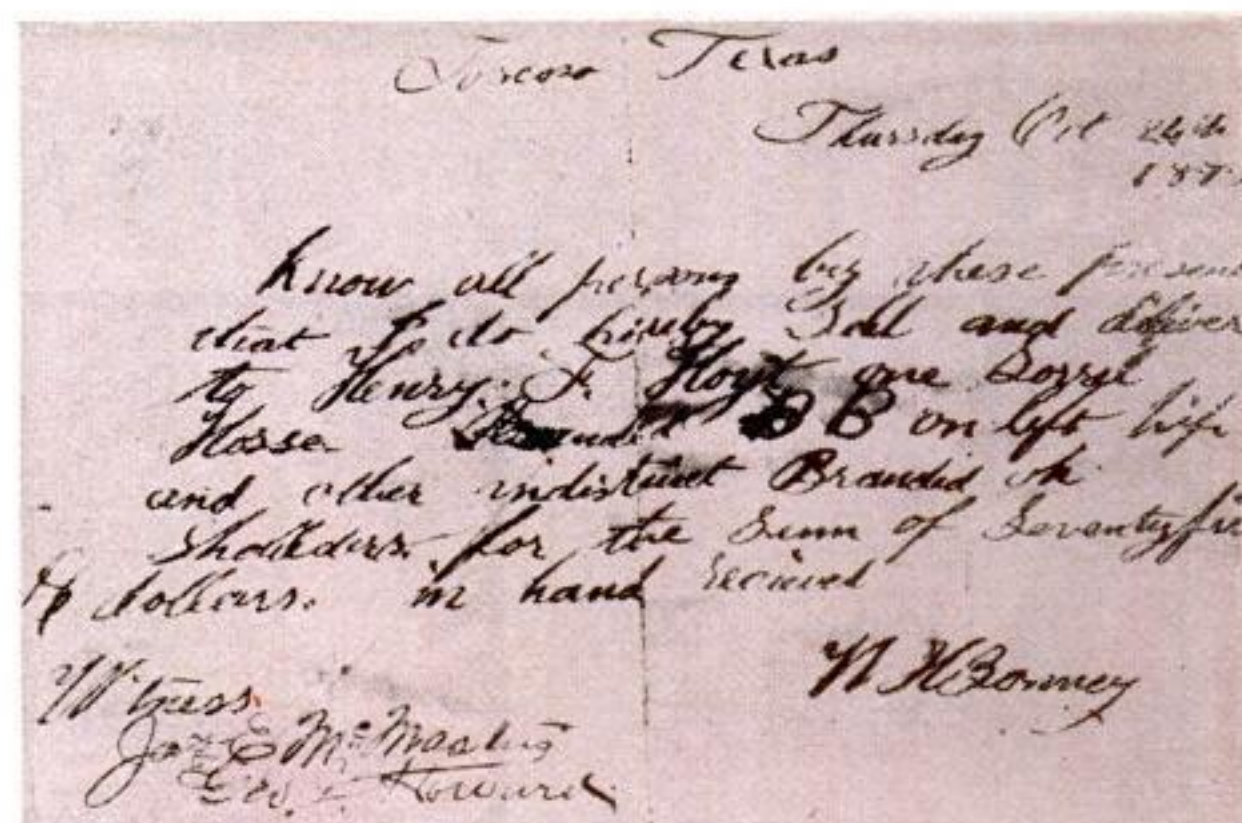 Toscosa Texas
Thursday Oct 24th
187
Know all persons by these present
that I do hereby Sell and diliver
to Henry. F. Hoyt one Sorrel
Horse Branded BB on left hip
and other indistinct Branded on
Shoulders. for the Sum of Seventyfive
$ dollars. in hand recieved
W HBonney
Witness.
Jas. E. McMasters
Geo. J. Howard